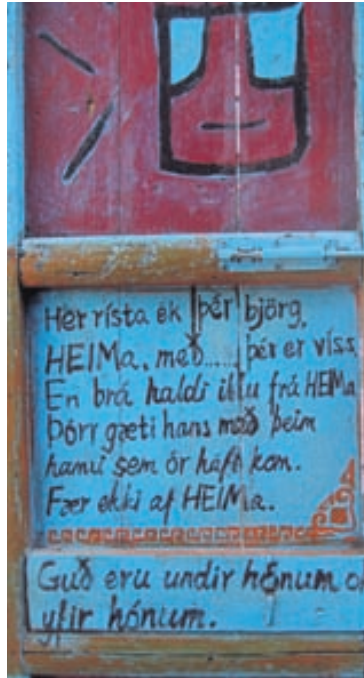 Hér rísta ek þér björg,
HEIMa, með...... þér er víss.
En brá haldi illu frá HEIMa
Þórr gæti hans með þeim
hamri sem ór hafi kom.
Fær ekki af HEIMa.
Guð eru undir hónum o
yfir hónum.